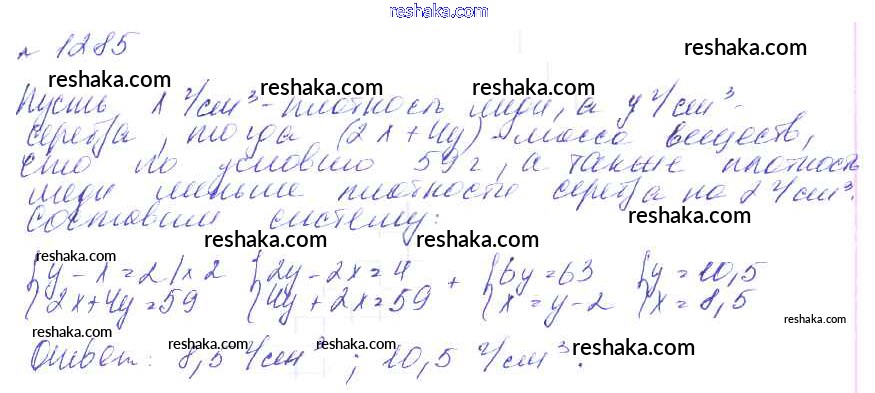 reshaka.com
№ 1285
reshaka.com
reshaka.com reshaka.com reshaka.com
Пусть x г/см³ - плотность меди, а y г/см³ -
серебра, тогда (2x+4y) - масса веществ,
что по условию 59 г, а также плотность
меди меньше плотности серебра на 2 г/см³.
reshaka.com
Составим систему:
reshaka.com reshaka.com
reshaka.com reshaka.com reshaka.com
{y - x = 2 |x2 {2y - 2x = 4 + {6y = 63 {y = 10,5
{2x + 4y = 59 {4y + 2x = 59 {x = y - 2 {x = 8,5
reshaka.com reshaka.com reshaka.com
Ответ: 8,5 г/см³; 10,5 г/см³.